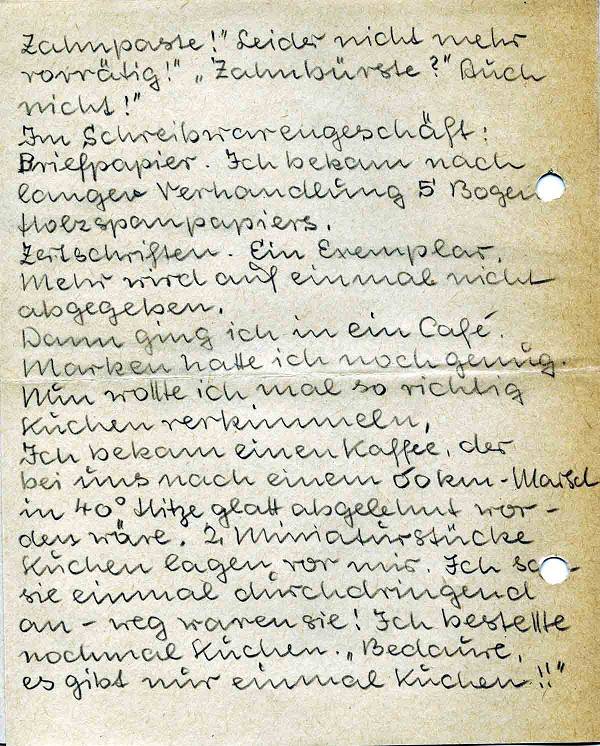 Zahnpaste!" Leider nicht mehr
vorrätig!" „Zahnbürste?" Auch
nicht!"
Im Schreibwarengeschäft:
Briefpapier. Ich bekam nach
langer Verhandlung 5 Bogen
Holzspanpapiers.
Zeitschriften. Ein Exemplar.
Mehr wird auf einmal nicht
abgegeben.
Dann ging ich in ein Café.
Marken hatte ich noch genug.
Nun wollte ich mal so richtig
Kuchen verkimmeln.
Ich bekam einen Kaffee, der
bei uns nach einem 60 km-Marsch
in 40° Hitze glatt abgelehnt wor-
den wäre. 2 Miniaturstücke
Kuchen lagen vor mir. Ich
sie einmal durchdringend
an - weg waren sie! Ich bestellte
nochmal Kuchen. „Bedaure,
es gibt nur einmal Kuchen!!"